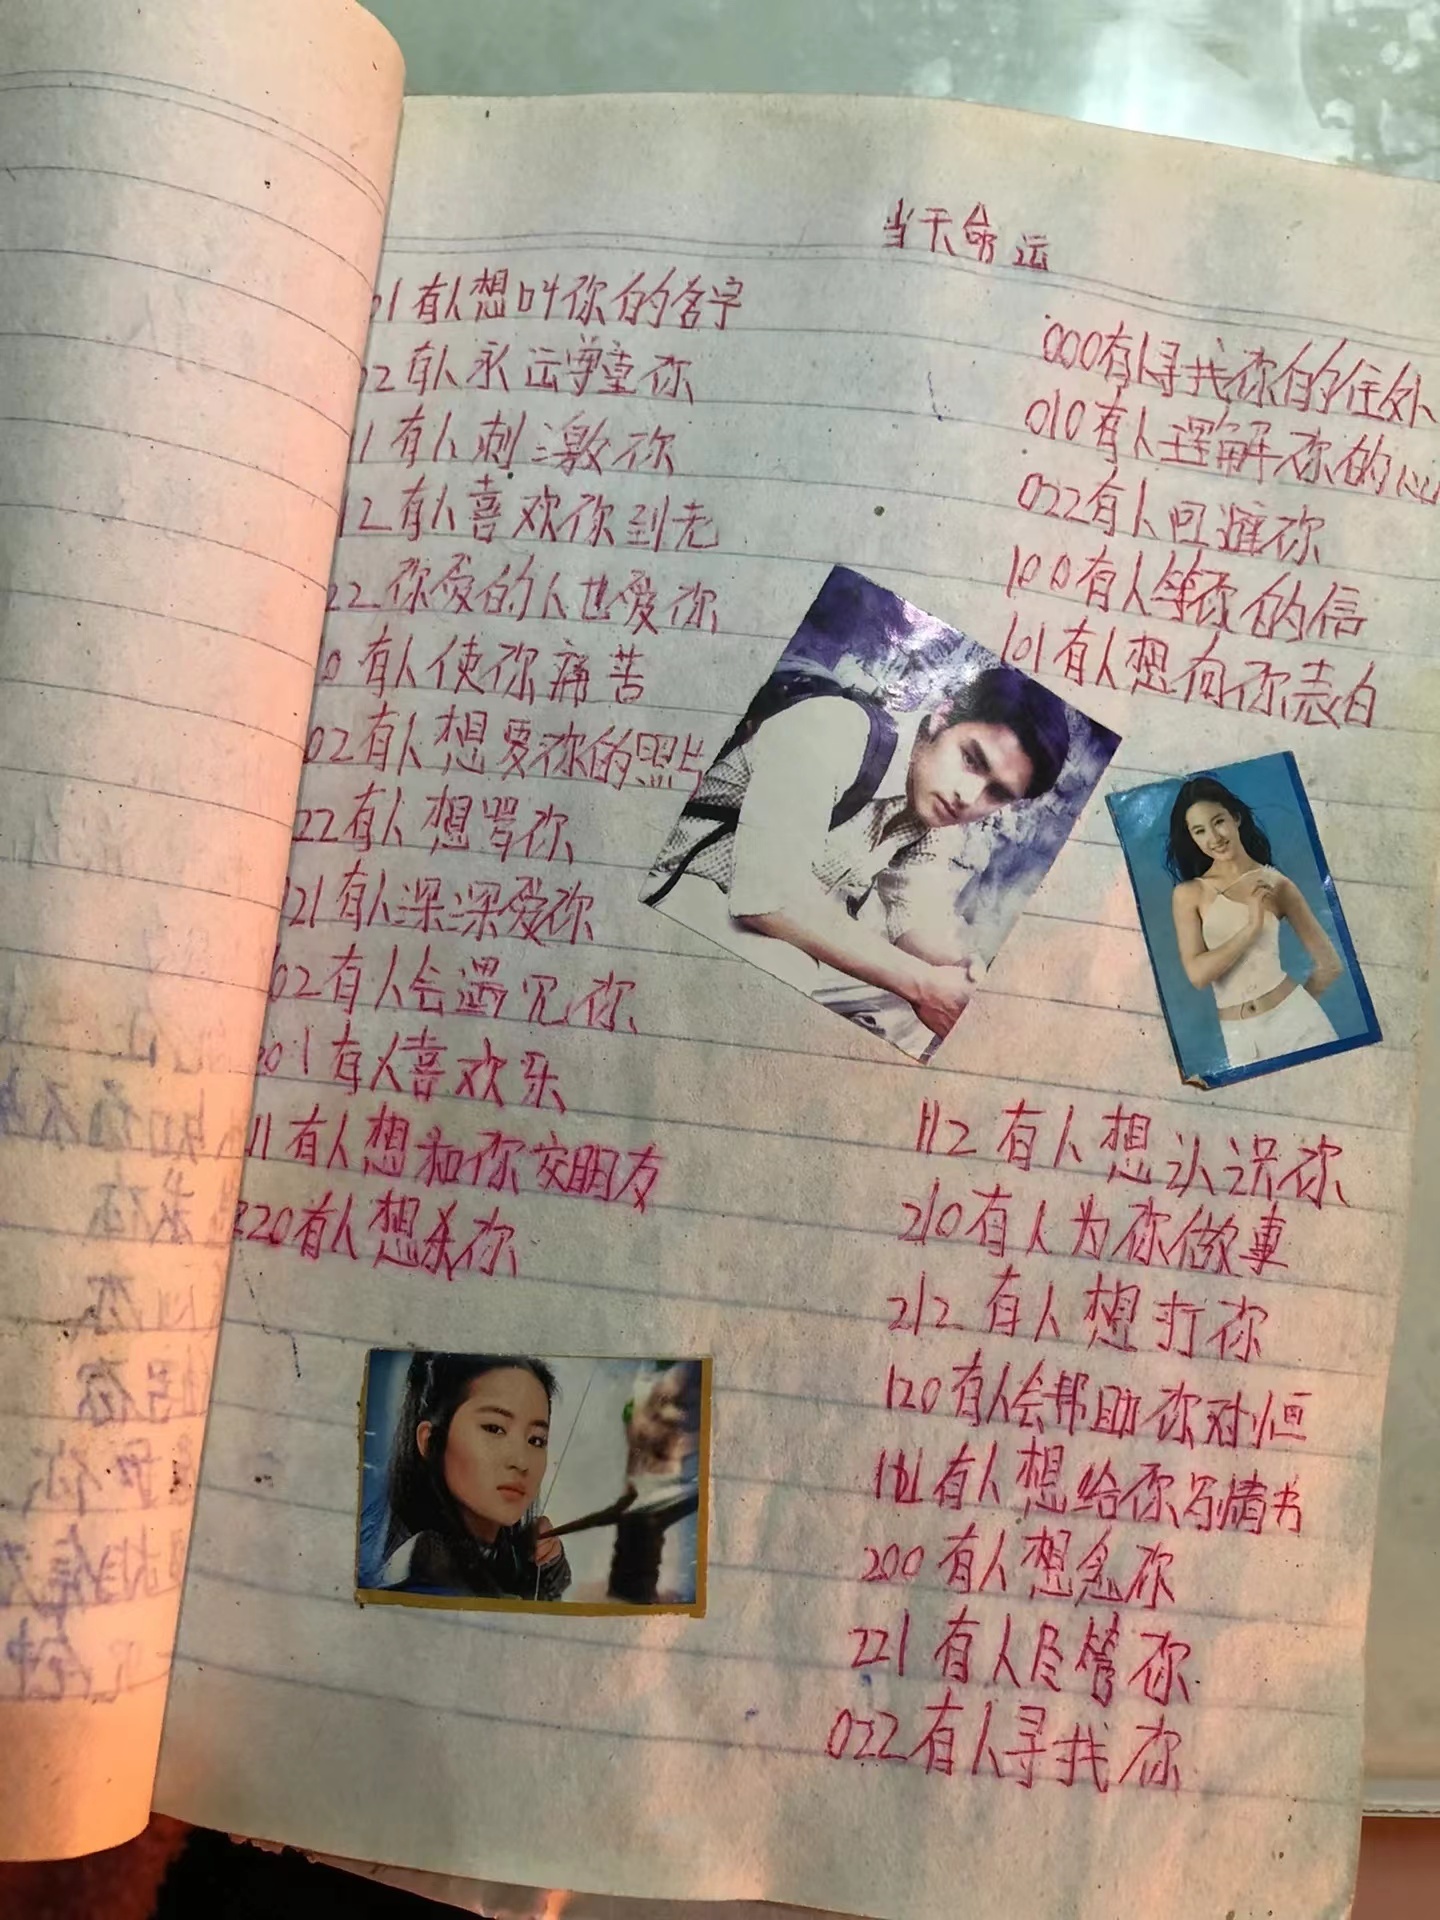 当天命运
01有人想叫你的名字
02有人永远尊重你
11有人刺激你
12有人喜欢你到老
22你爱的人也爱你
0有人使你痛苦
02有人想要你的照片
22有人想骂你
121有人深深爱你
02有人会遇见你
201有人喜欢乐
11有人想和你交朋友
220有人想杀你
000有人寻找你的住处
010有人理解你的心
022有人回避你
100有人等你的信
101有人想向你表白
112有人想认识你
210有人为你做事
212有人想打你
120有人会帮助你对
有人想给你写情书
200有人想念你
221有人尽管你
022有人寻找你